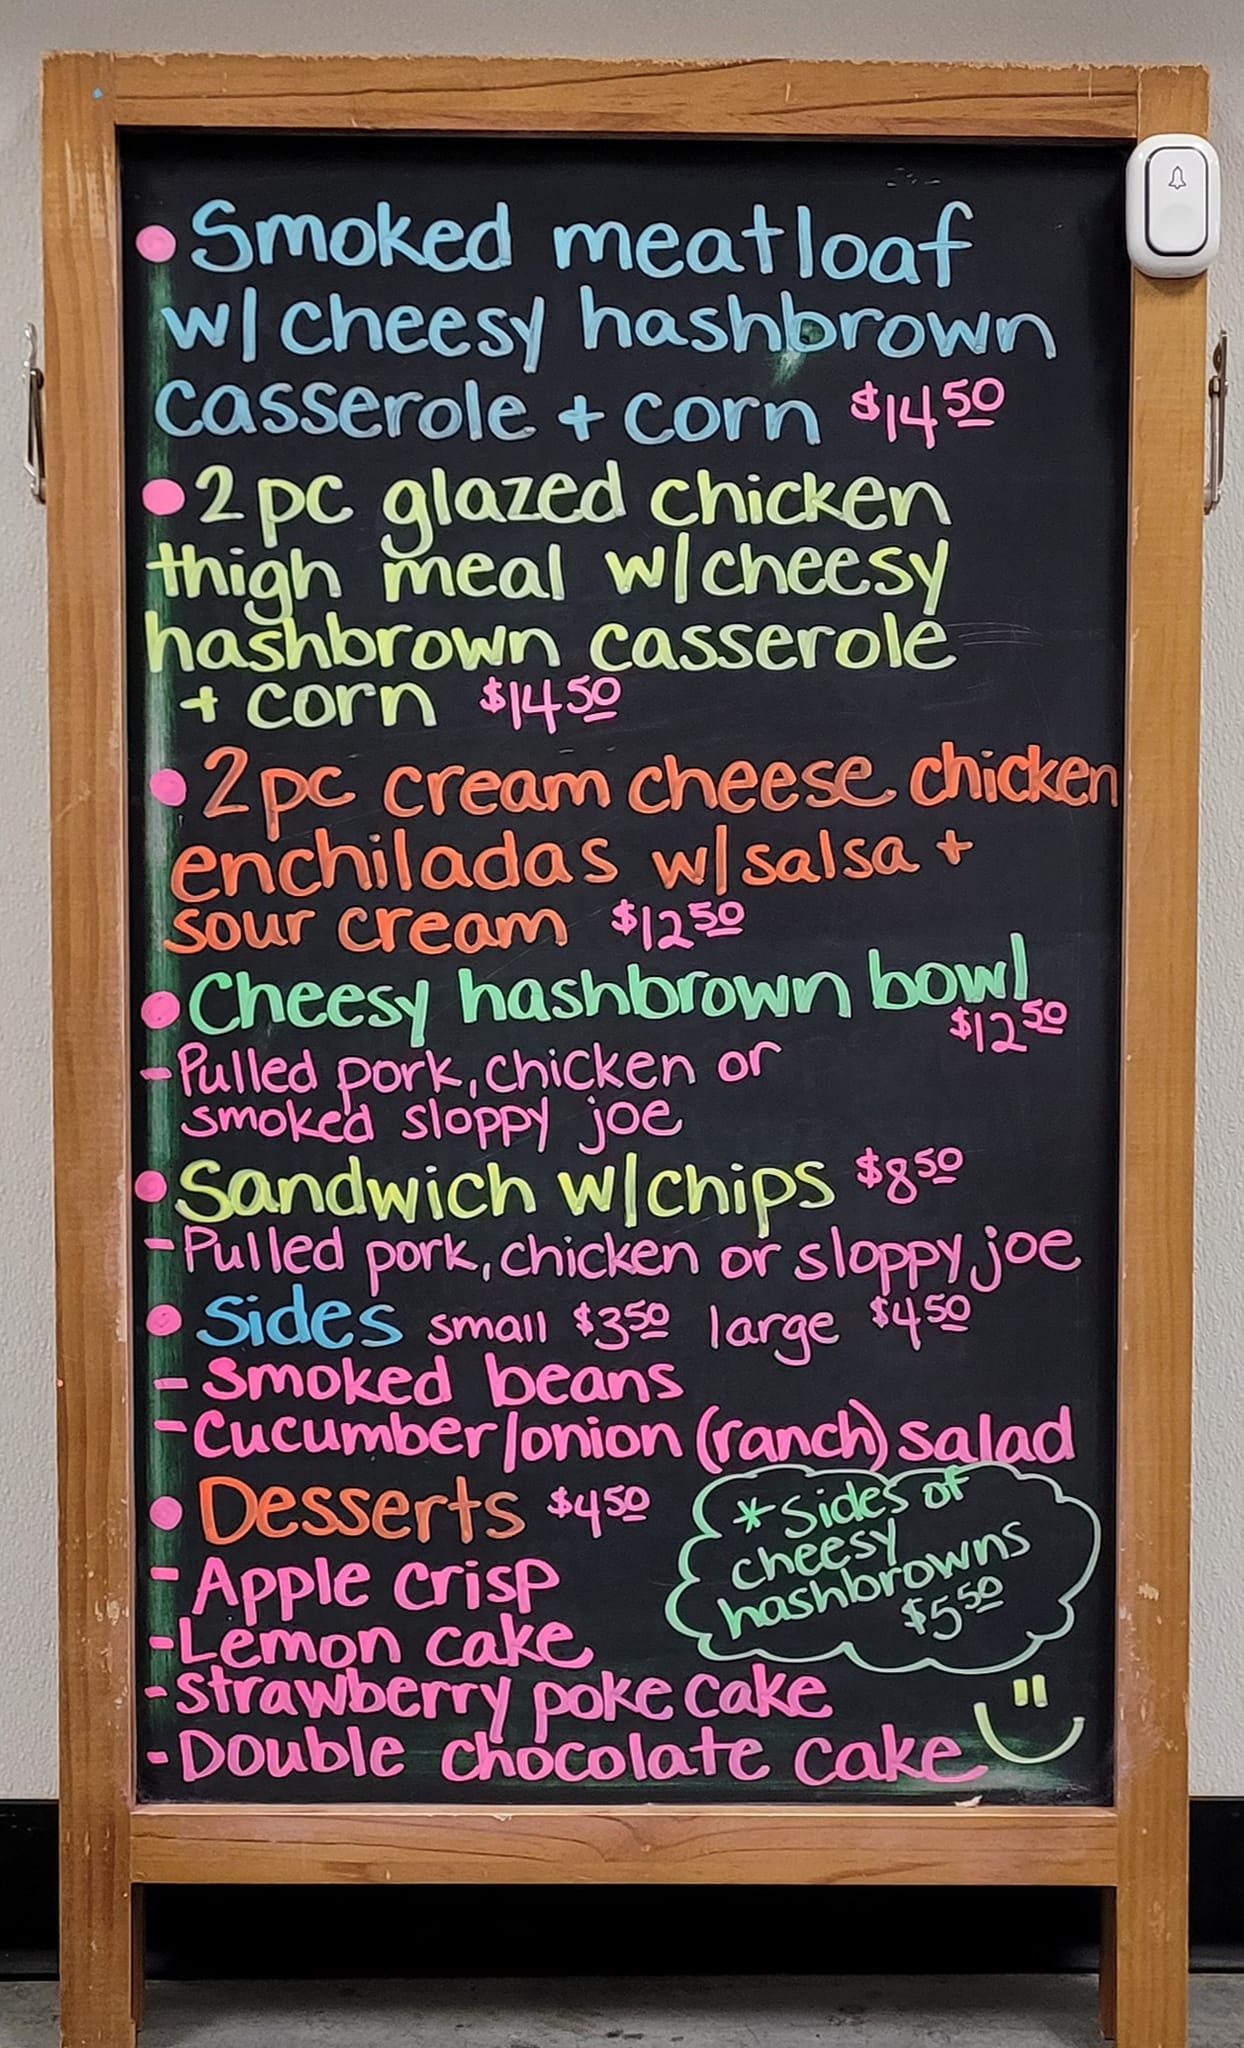 • Smoked meatloaf
w/ cheesy hashbrown
casserole + corn $14.50
• 2pc glazed chicken
thigh meal w/ cheesy
hashbrown casserole
+ corn $14.50
• 2pc cream cheese chicken
enchiladas w/ salsa +
sour cream $12.50
• Cheesy hashbrown bowl
$12.50
- Pulled pork, chicken or
smoked sloppy joe
• Sandwich w/ chips $8.50
- Pulled pork, chicken or sloppy joe
• Sides small $3.50 large $4.50
- Smoked beans
- Cucumber/onion (ranch) salad
• Desserts $4.50
- Apple crisp
- Lemon cake
- Strawberry poke cake
- Double chocolate cake
* Sides of
cheesy
hashbrowns
$5.50